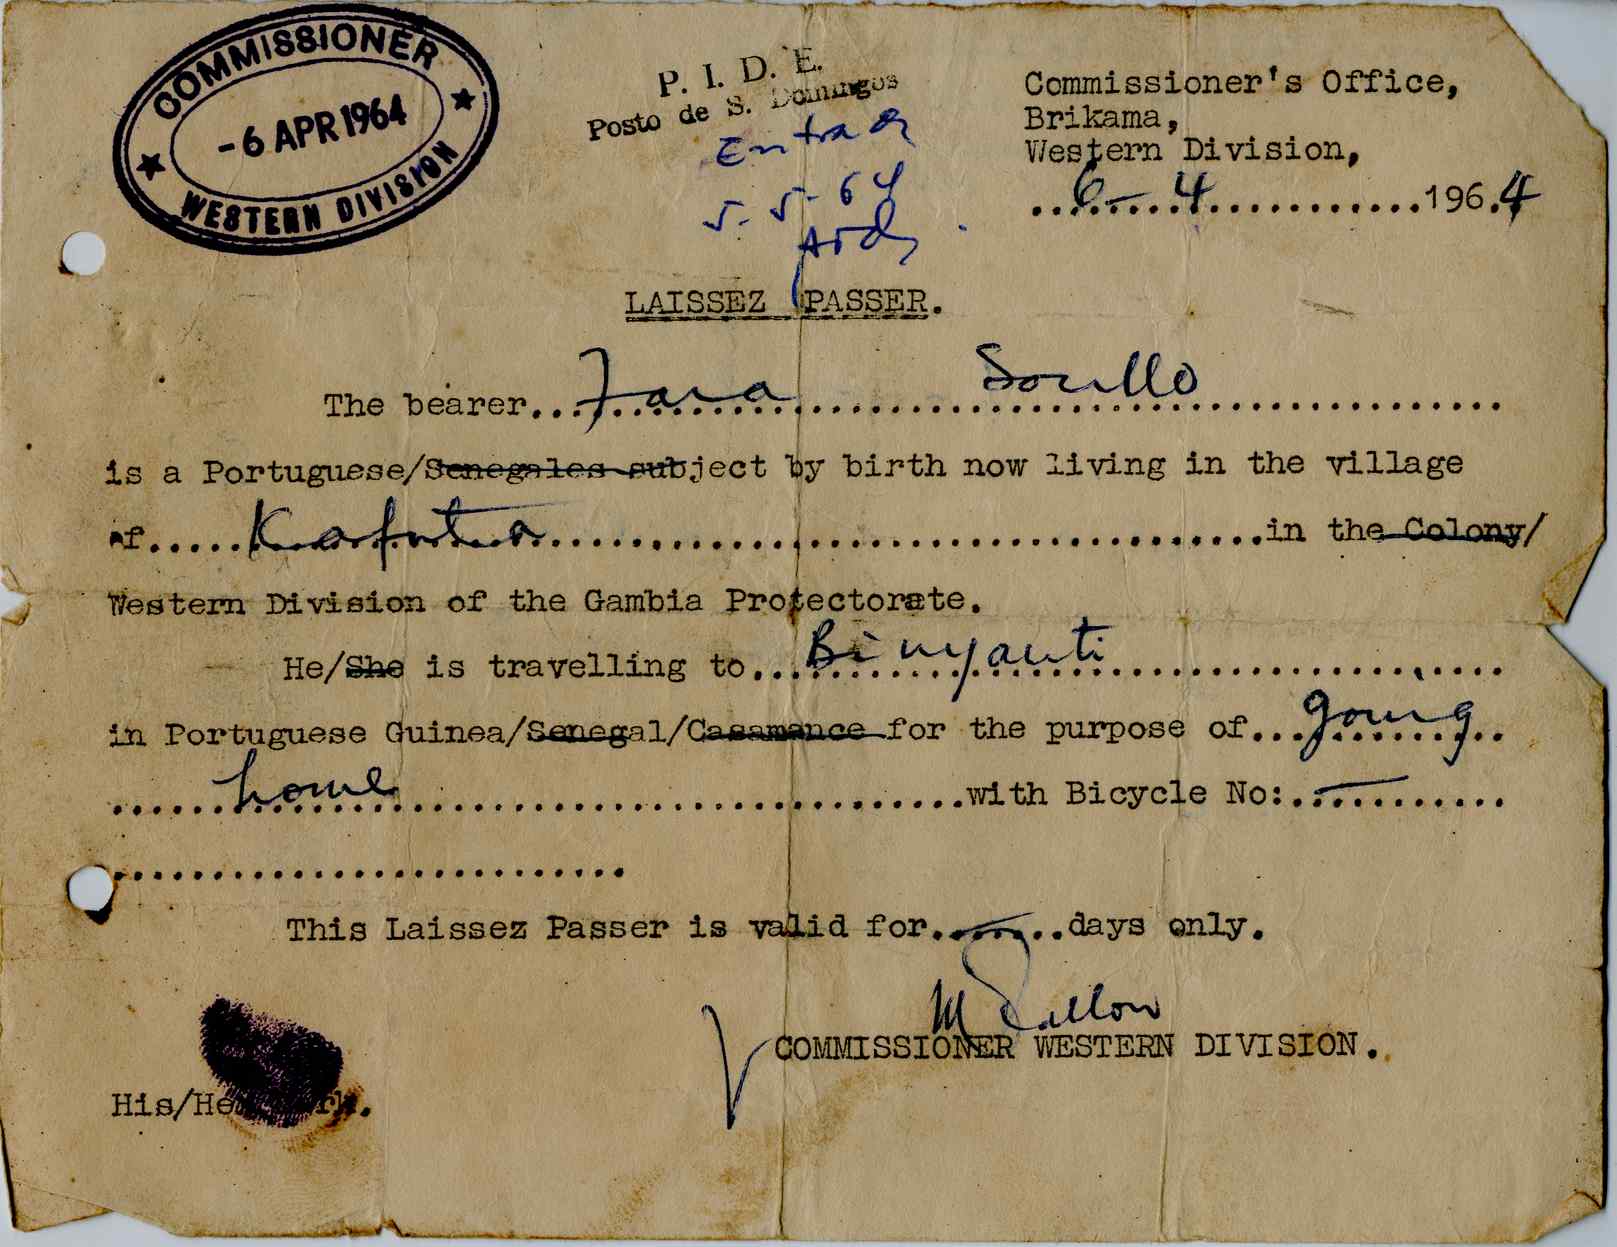 COMMISSIONER
-6 APR 1964
WESTERN DIVISION
P. I. D. E.
Posto de S. Domingos
Entrada
5-5-64
Commissioner's Office,
Brikama,
Western Division,
6-4 1964
LAISSEZ PASSER.
The bearer... Fara
is a Portuguese/Senegales subject by birth now living in the village
of..... Kafuta .....in the Colony/
Western Division of the Gambia Protectorate.
He/She is travelling to...
in Portuguese Guinea/Senegal/Casamance for the purpose of... going
home .....with Bicycle No:. —
This Laissez Passer is valid for. — ..days only.
COMMISSIONER WESTERN DIVISION.
His/Her mark.